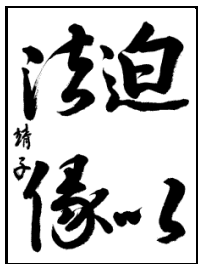 迫以
法像
靖子